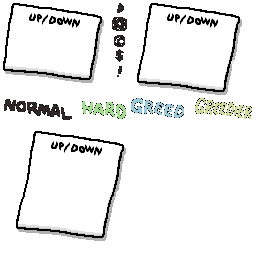 UP/DOWN
UP/DOWN
$
!
NORMAL HARD GREED GREEDIER
UP/DOWN